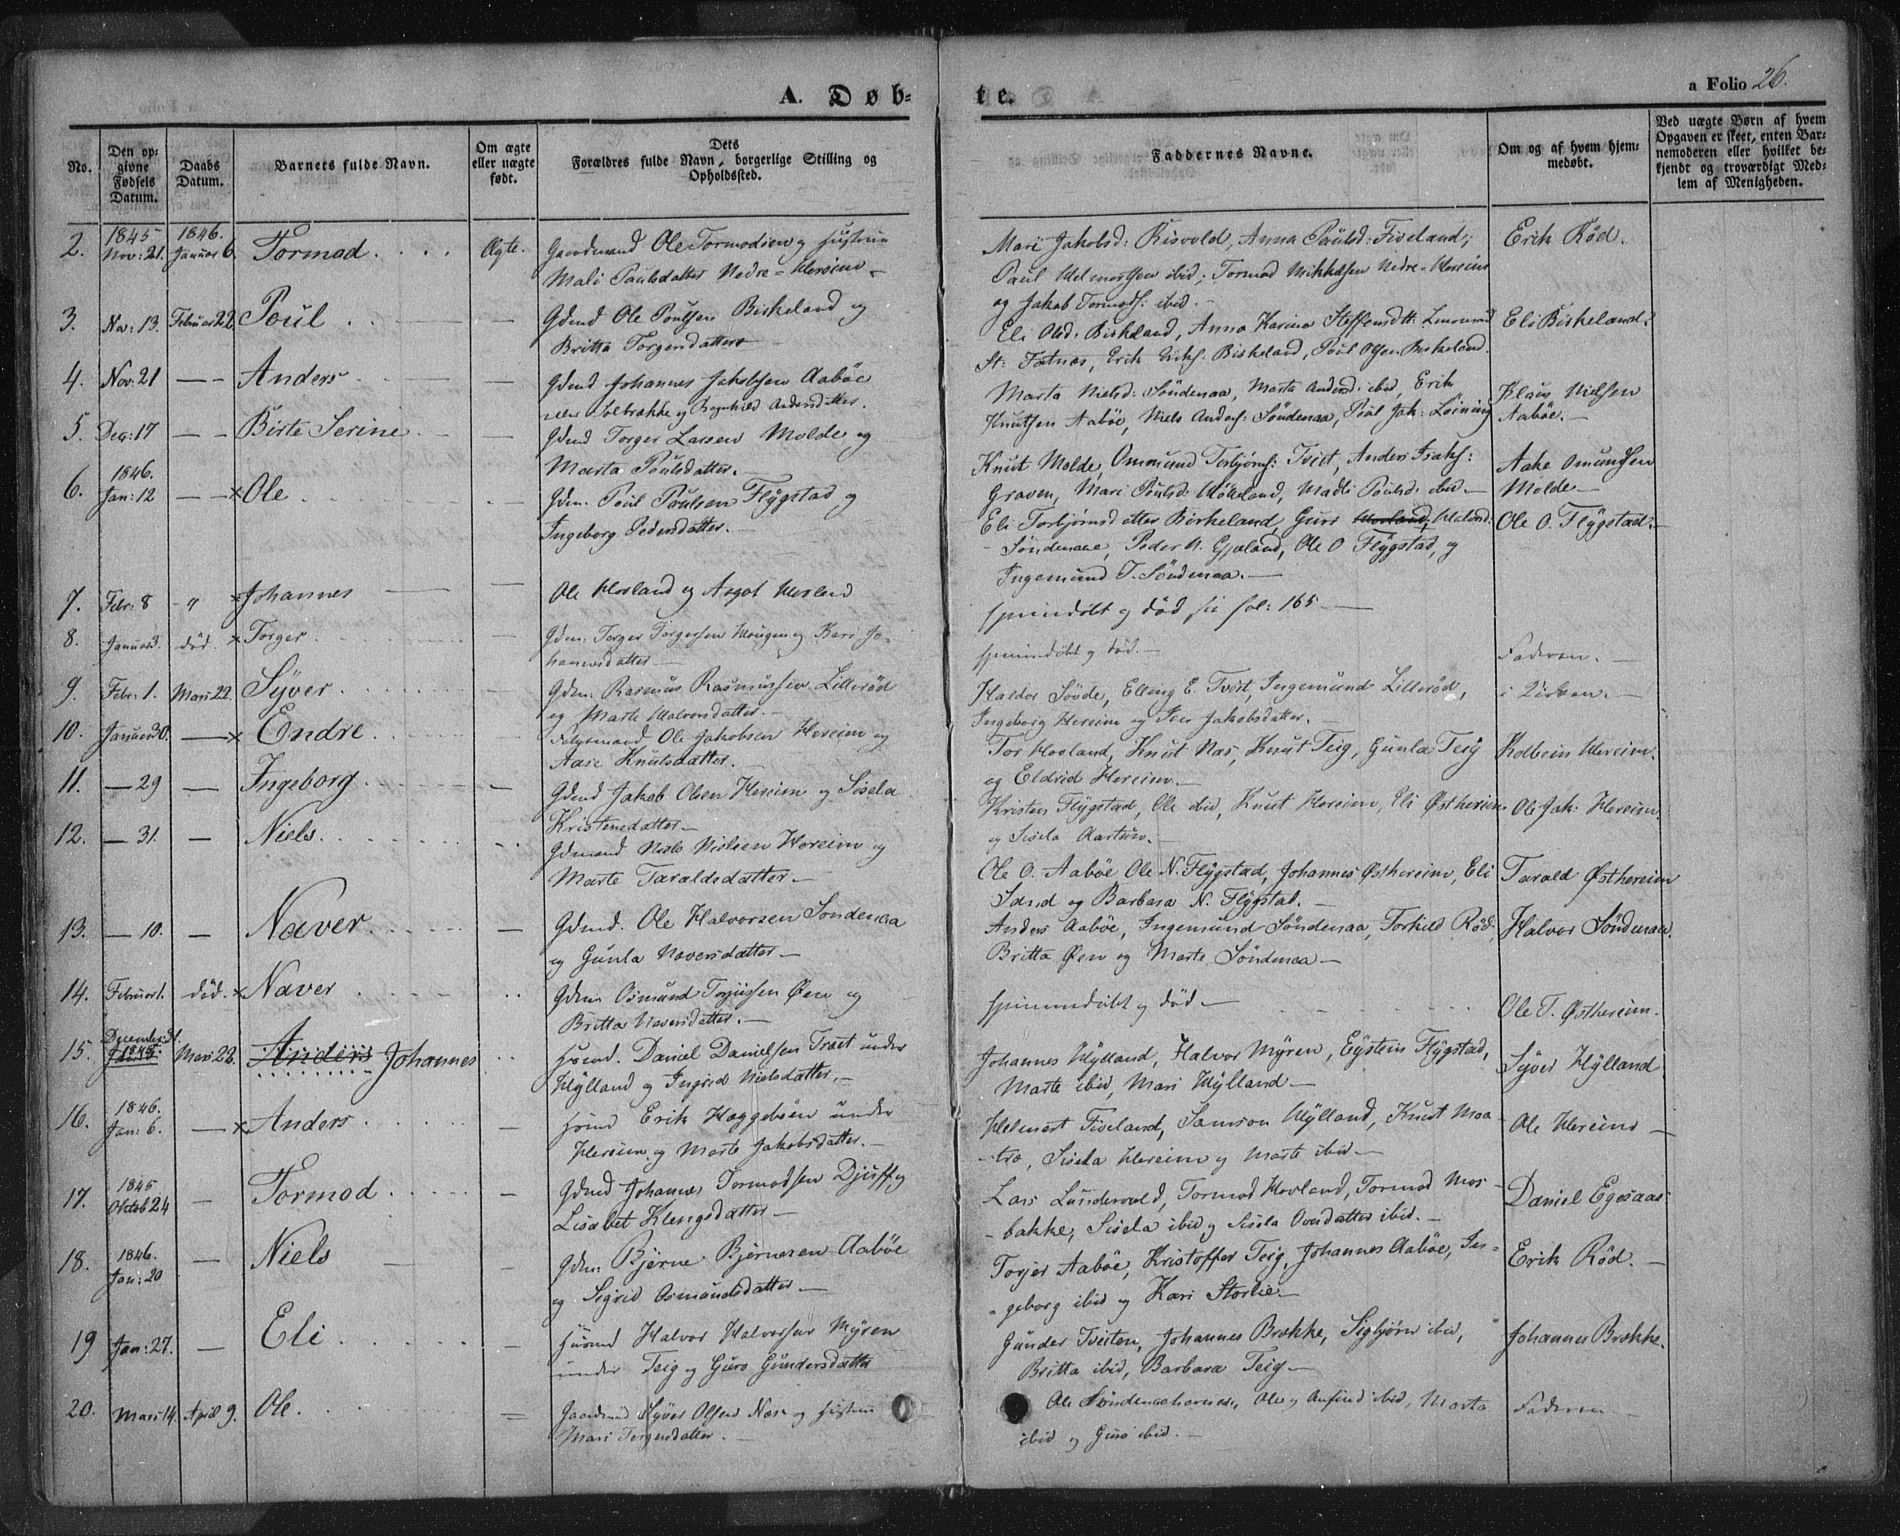 A. Døb-
te.
a Folio 26.
No.
Den op-
givne
Fødsels
Datum.
Daabs
Datum.
Barnets fulde Navn.
Om ægte
eller uægte
født.
Dets
Forældres fulde Navn, borgerlige Stilling og
Opholdssted.
Faddernes Navne.
Om og af hvem hjem-
medøbt.
Ved uægte Børn af hvem
Opgaven er skeet, enten Bar-
nemoderen eller hvilket be-
kjendt og troværdigt Med-
lem af Menigheden.
2. 1845 Nov: 21. 1846. Januar 6. Tormod. Ægte.
Gaardmand Ole Tormodsen og Hustrue
Mali Paulsdatter Nedre-Hereim
Mari Jakobsd: Risvold, Anna Paulsd: Fiveland;
Paul Helmertsen ibid; Tormod Mikkelsen Nedre-Hereim
og Jakob Tormods: ibid.
Erik Rød.
3. Nov: 13. Februar 22. Poul.
Gdmd Ole Poulsen Birkeland og
Britta Torgersdatter
Eli Olsd: Birkeland, Anna Karina Steffensdtt:
St: Fotnes, Erik Eriks: Birkeland, Poul Olsen Birkeland.
Eli Birkeland.
4. Nov: 21 — Anders
Gdmd Johannes Jakobsen Aabøe
og Ragnhild Andersdatter.
Marta Nielsd: Söndenaa, Marta Andersd: ibid, Erik
Knutsen Aabøe, Niels Anders: Söndenaa, Poul Jak: Leining
Klaus Nielsen
Aabøe.
5. Dec: 17 — Birte Serine
Gdmd Torger Larsen Molde og
Marta Poulsdatter.
Knut Molde, Ommund Torbjörns: Tveit, Anders Isaks:
Graven, Mari Poulsd: Mökeland, Madli Poulsd: ibid
Aake Omundsen
Molde
6. 1846. Jan: 12 — × Ole
Gdm. Poul Poulsen Flÿgstad og
Ingeborg Pedersdatter.
Eli Torbjörnsdatter Birkeland, Guri Hovland,
Söndenaae, Peder A. Gjeland, Ole O Flÿgstad, og
Ingemund T. Söndenaa.
Ole O. Flÿgstad.
7. Febr: 8 " × Johannes
Ole Hovland og Asgot Hovland
hjemmedöbt og död see fol: 165
8. Januar 3. död. × Torger
Gdm: Torger Torgersen Hougen og Kari Jo-
hannesdatter
hjemmedöbt og död.
Faderen.
9. Febr: 1. Mars 22. Sÿver
Gdm: Rasmus Rasmussen Lilleröd
og Marte Halvorsdatter.
Haldor Søvde, Elling E. Tveit, Ingemund Lilleröd,
Ingeborg Hereim og Siri Jakobsdatter.
i Kirken.
10. Januar 30. — × Endre
Ole Jakobsen Hereim og
Aase Knutsdatter.
Tor Hovland, Knut Nas, Knut Teig, Gunla Teig
og Eldrid Hereim.
Kolbein Hereim.
11. — 29 — Ingeborg
Gdmd Jakob Olsen Hereim og Sisela
Kristensdatter
Kristen Flÿgstad, Ole ibid, Knut Hereim, Eli Østhereim
og Sisela Aartun.
Ole Jak: Hereim.
12. — 31. — Niels
Gdmand Niels Nielsen Hereim og
Marte Taraldsdatter
Ole O. Aabøe Ole N. Flÿgstad, Johannes Østhereim, Eli
Sand og Barbara N. Flÿgstad.
Tarald Østhereim
13. — 10. — Naver
Gdmd. Ole Halvorsen Söndenaa
og Gunla Naversdatter
Anders Aabøe, Ingemund Söndenaa, Torkild Röd,
Britta Øen og Marte Söndenaa
Halvor Söndenaa.
14. Februar 1. död. × Naver
Gdm Osmund Øen og
Britta Naversdatter.
hjemmedöbt og död
Ole T. Østhereim.
15. December 31. 1845 Mars 22. Anders Johannes
Husmd. Daniel Danielsen Træet under
Hÿlland og Ingrid Nielsdatter.
Johannes Hÿlland, Halvor Mÿren, Eÿstein Flÿgstad,
Marte ibid, Mari Hÿlland
Sÿver Hÿlland
16. 1846. Jan: 6. — × Anders
Husmd Erik Haggebøen under
Hereim og Marte Jakobsdatter.
Helmert Fiveland, Samson Hÿlland, Knut Maa-
tra, Sisela Hereim og Marte ibid
Ole Hereim
17. 1845 Oktob 24 — Tormod
Gdmd Johannes Tormodsen Djuf og
Lisabet Klengsdatter
Lars Lundevold, Tormod Hovland, Tormod Mos-
bakke, Sisela ibid og Sisela Oversdatter ibid.
Daniel Egesaas
18. 1846. Jan: 20 — Niels
Gdm: Bjerne Bjernesen Aabøe
og Sigrid Osmundsdatter
Torjer Aabøe, Kristoffer Teig, Johannes Aabøe, In-
geborg ibid og Kari Storlie
Erik Röd.
19 Jan: 27. — Eli
Husmd Halvor Halvorsen Mÿren
under Teig og Guro Gundersdatter
Gunder Tveiten, Johannes Brække, Sigbjørn ibid,
Britta ibid, Barbara Teig
Johannes Brække.
20. Mars 14. April 9. Ole.
Gaardmd Sÿver Olsen Næs og Hustrue
Mari Torgersdatter.
Ole Söndenaa, Ole og Anfind ibid, Marta
ibid og Guro ibid.
Faderen